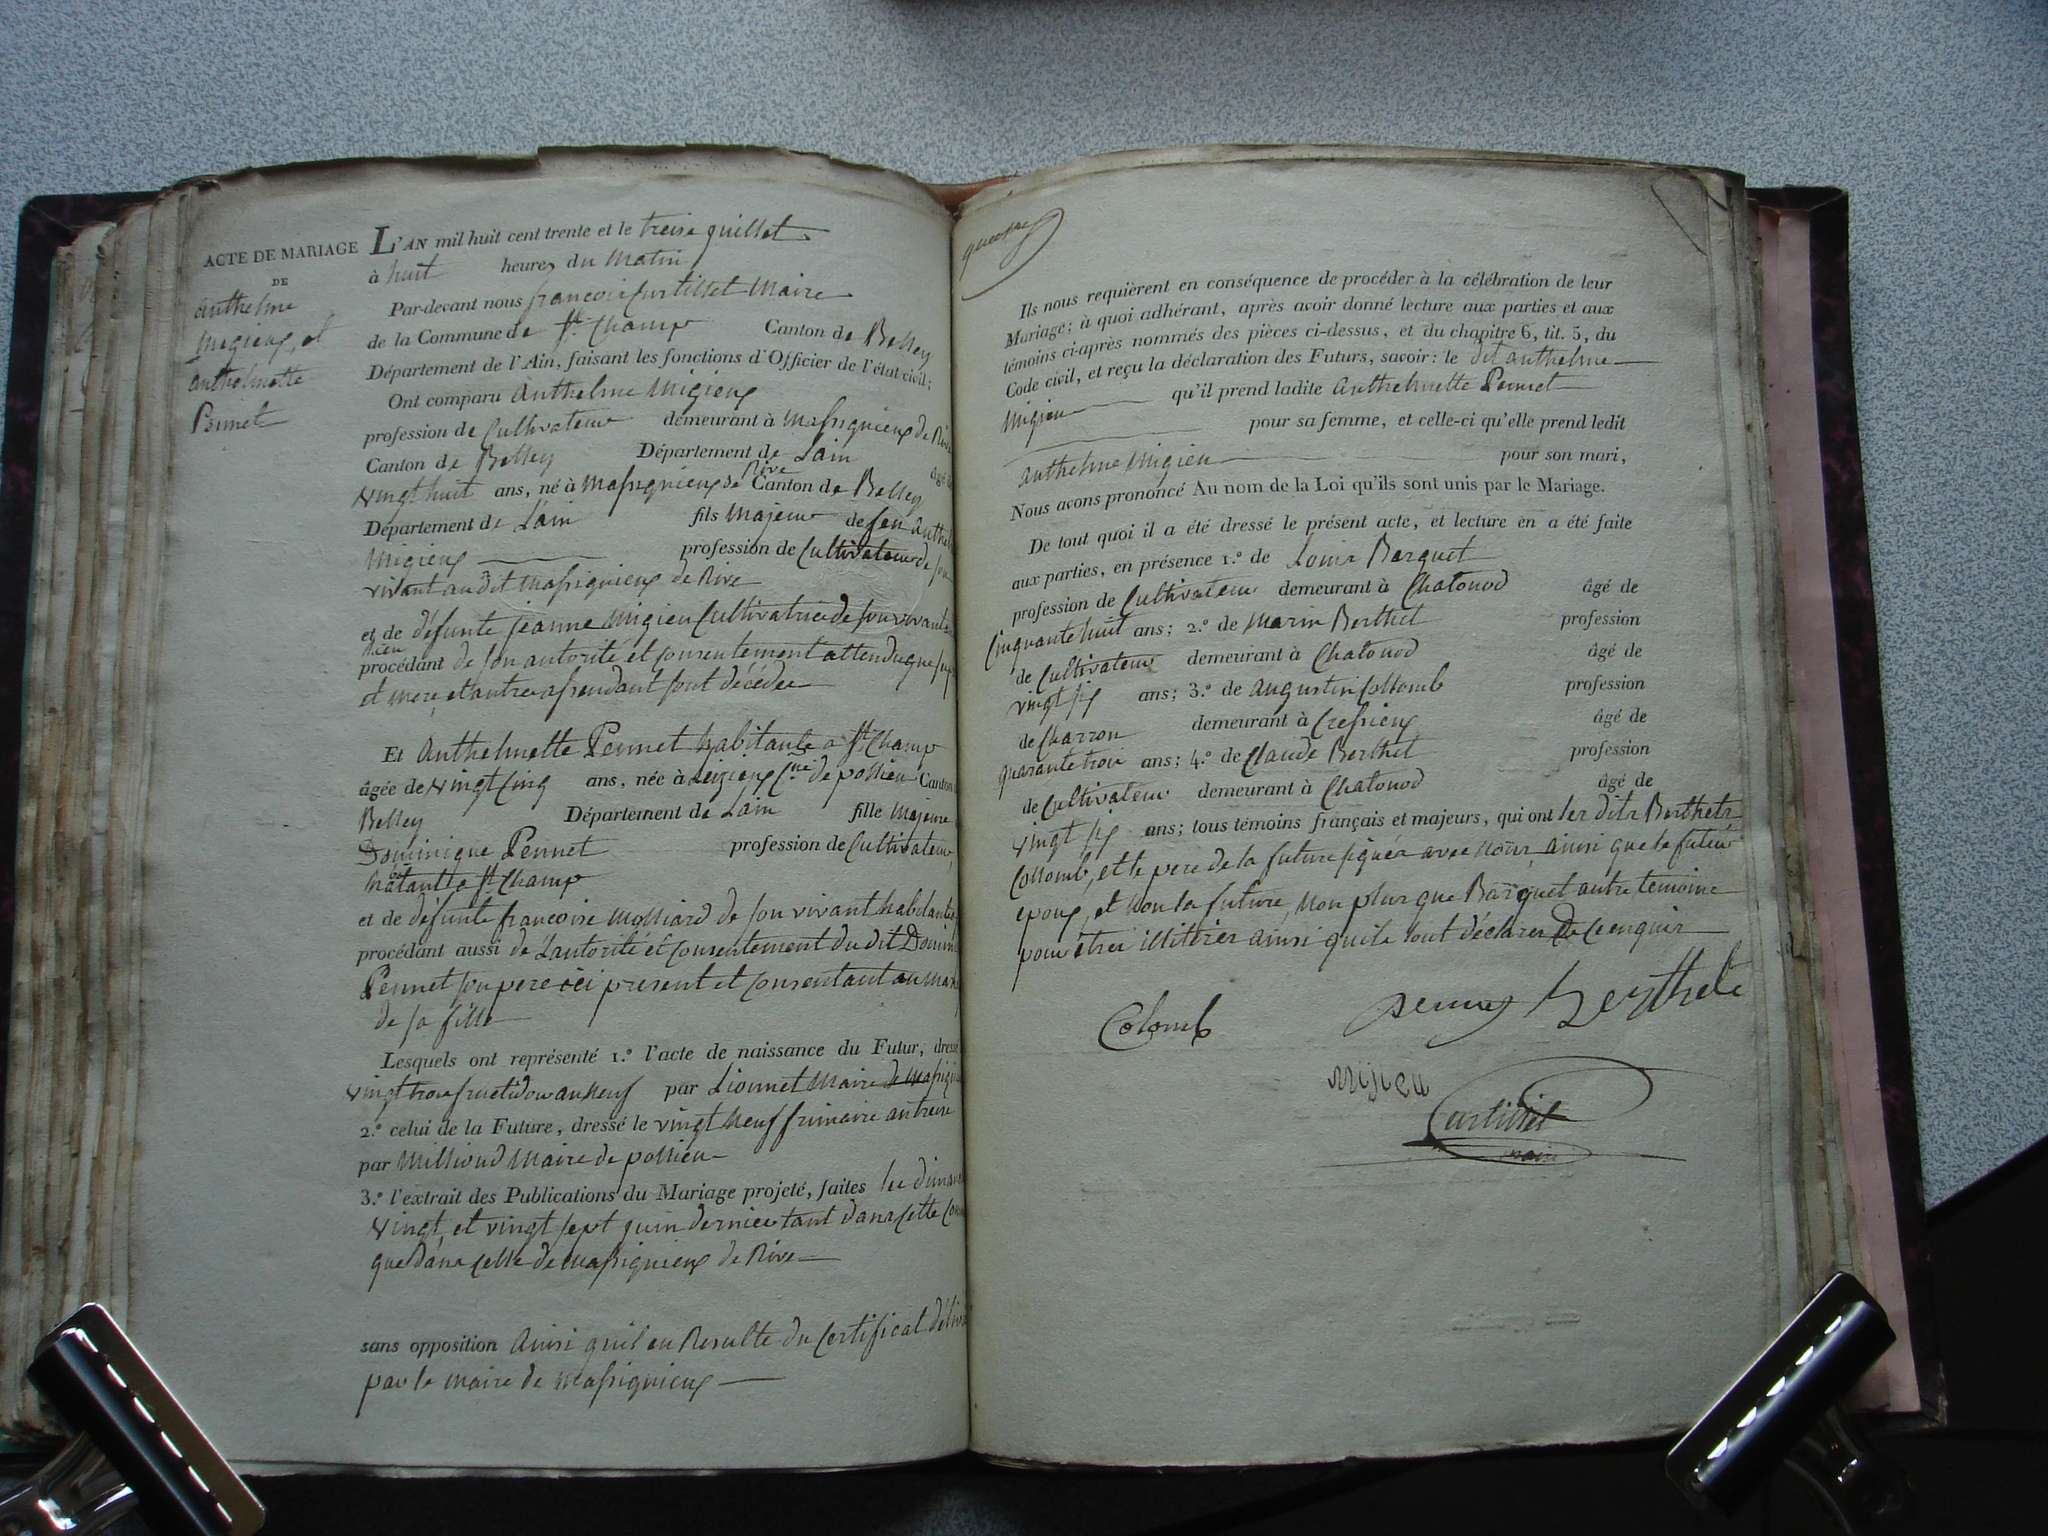 ACTE DE MARIAGE
DE
anthelme
migieux, et
anthelmette
Pennet
L'AN mil huit cent trente et le treise juillet
à huit heures du matin
Par-devant nous francois curtillet Maire
de la Commune de St. Champ Canton de Belley
Département de l'Ain, faisant les fonctions d'Officier de l'état civil;
Ont comparu Anthelme Migieux
profession de Cultivateur demeurant à Massignieux de Rive
Canton de Belley Département de Lain âgé de
vingt huit ans, né à Massignieux de Rive Canton de Belley
Département de Lain fils majeur de feu anthelme
Migieux profession de Cultivateur de son
vivant audit Massignieux de Rive
et de défunte jeanne Migieu Cultivatrice de son vivant
procédant de son autorité et consentement attendu que ses pere
et mere, et autres assendant sont décédés
Et Anthelmette Pennet habitante a St. Champ
âgée de vingt Cinq ans, née à Leizieux Cne de pollieu Canton
Belley Département de Lain fille majeure
Dominique Pennet profession de Cultivateur,
habitant a St. Champ
et de défunte francoise Molliard de son vivant habitante
procédant aussi de Lautorité et Consentement du dit Domin
Pennet son pere ici present et Consentant au mari
de sa fille
Lesquels ont représenté 1.º l'acte de naissance du Futur, dressé
vingt trois fructidor an neuf par Lionnet Maire de Massigni
2.º celui de la Future, dressé le vingt neuf frimaire an treise
par Millioud Maire de pollieu
3.º l'extrait des Publications du Mariage projeté, faites les dimanc
vingt, et vingt sept juin dernier tant dans cette Com
que dans celle de Massignieux de Rive
sans opposition ainsi quil en Resulte du Certificat délivré
par le maire de Massignieux
Ils nous requièrent en conséquence de procéder à la célébration de leur
Mariage; à quoi adhérant, après avoir donné lecture aux parties et aux
témoins ci-après nommés des pièces ci-dessus, et du chapitre 6, tit. 5, du
Code civil, et reçu la déclaration des Futurs, savoir: le dit anthelme
Migieu qu'il prend ladite Anthelmette Pennet
pour sa femme, et celle-ci qu'elle prend ledit
anthelme Migieu pour son mari,
Nous avons prononcé Au nom de la Loi qu'ils sont unis par le Mariage.
De tout quoi il a été dressé le présent acte, et lecture en a été faite
aux parties, en présence 1.º de Louis Barquet
profession de Cultivateur demeurant à Chatonod âgé de
Cinquante huit ans; 2.º de Marin Berthet profession
de Cultivateur demeurant à Chatonod âgé de
vingt six ans; 3.º de augustin Collomb profession
de Charron demeurant à Cressieux âgé de
quarante trois ans; 4.º de Claude Berthet profession
de Cultivateur demeurant à Chatonod âgé de
vingt six ans; tous témoins français et majeurs, qui ont les dits Berthets
Collomb, et le pere de la future signés avec nous, ainsi que le futeur
epoux, et non la future, non plus que Barquet autre temoins
pour étres illitirés ainsi quils lont déclarés De Ce enquis
Colomb pennet berthet
migieu
Curtillet
maire